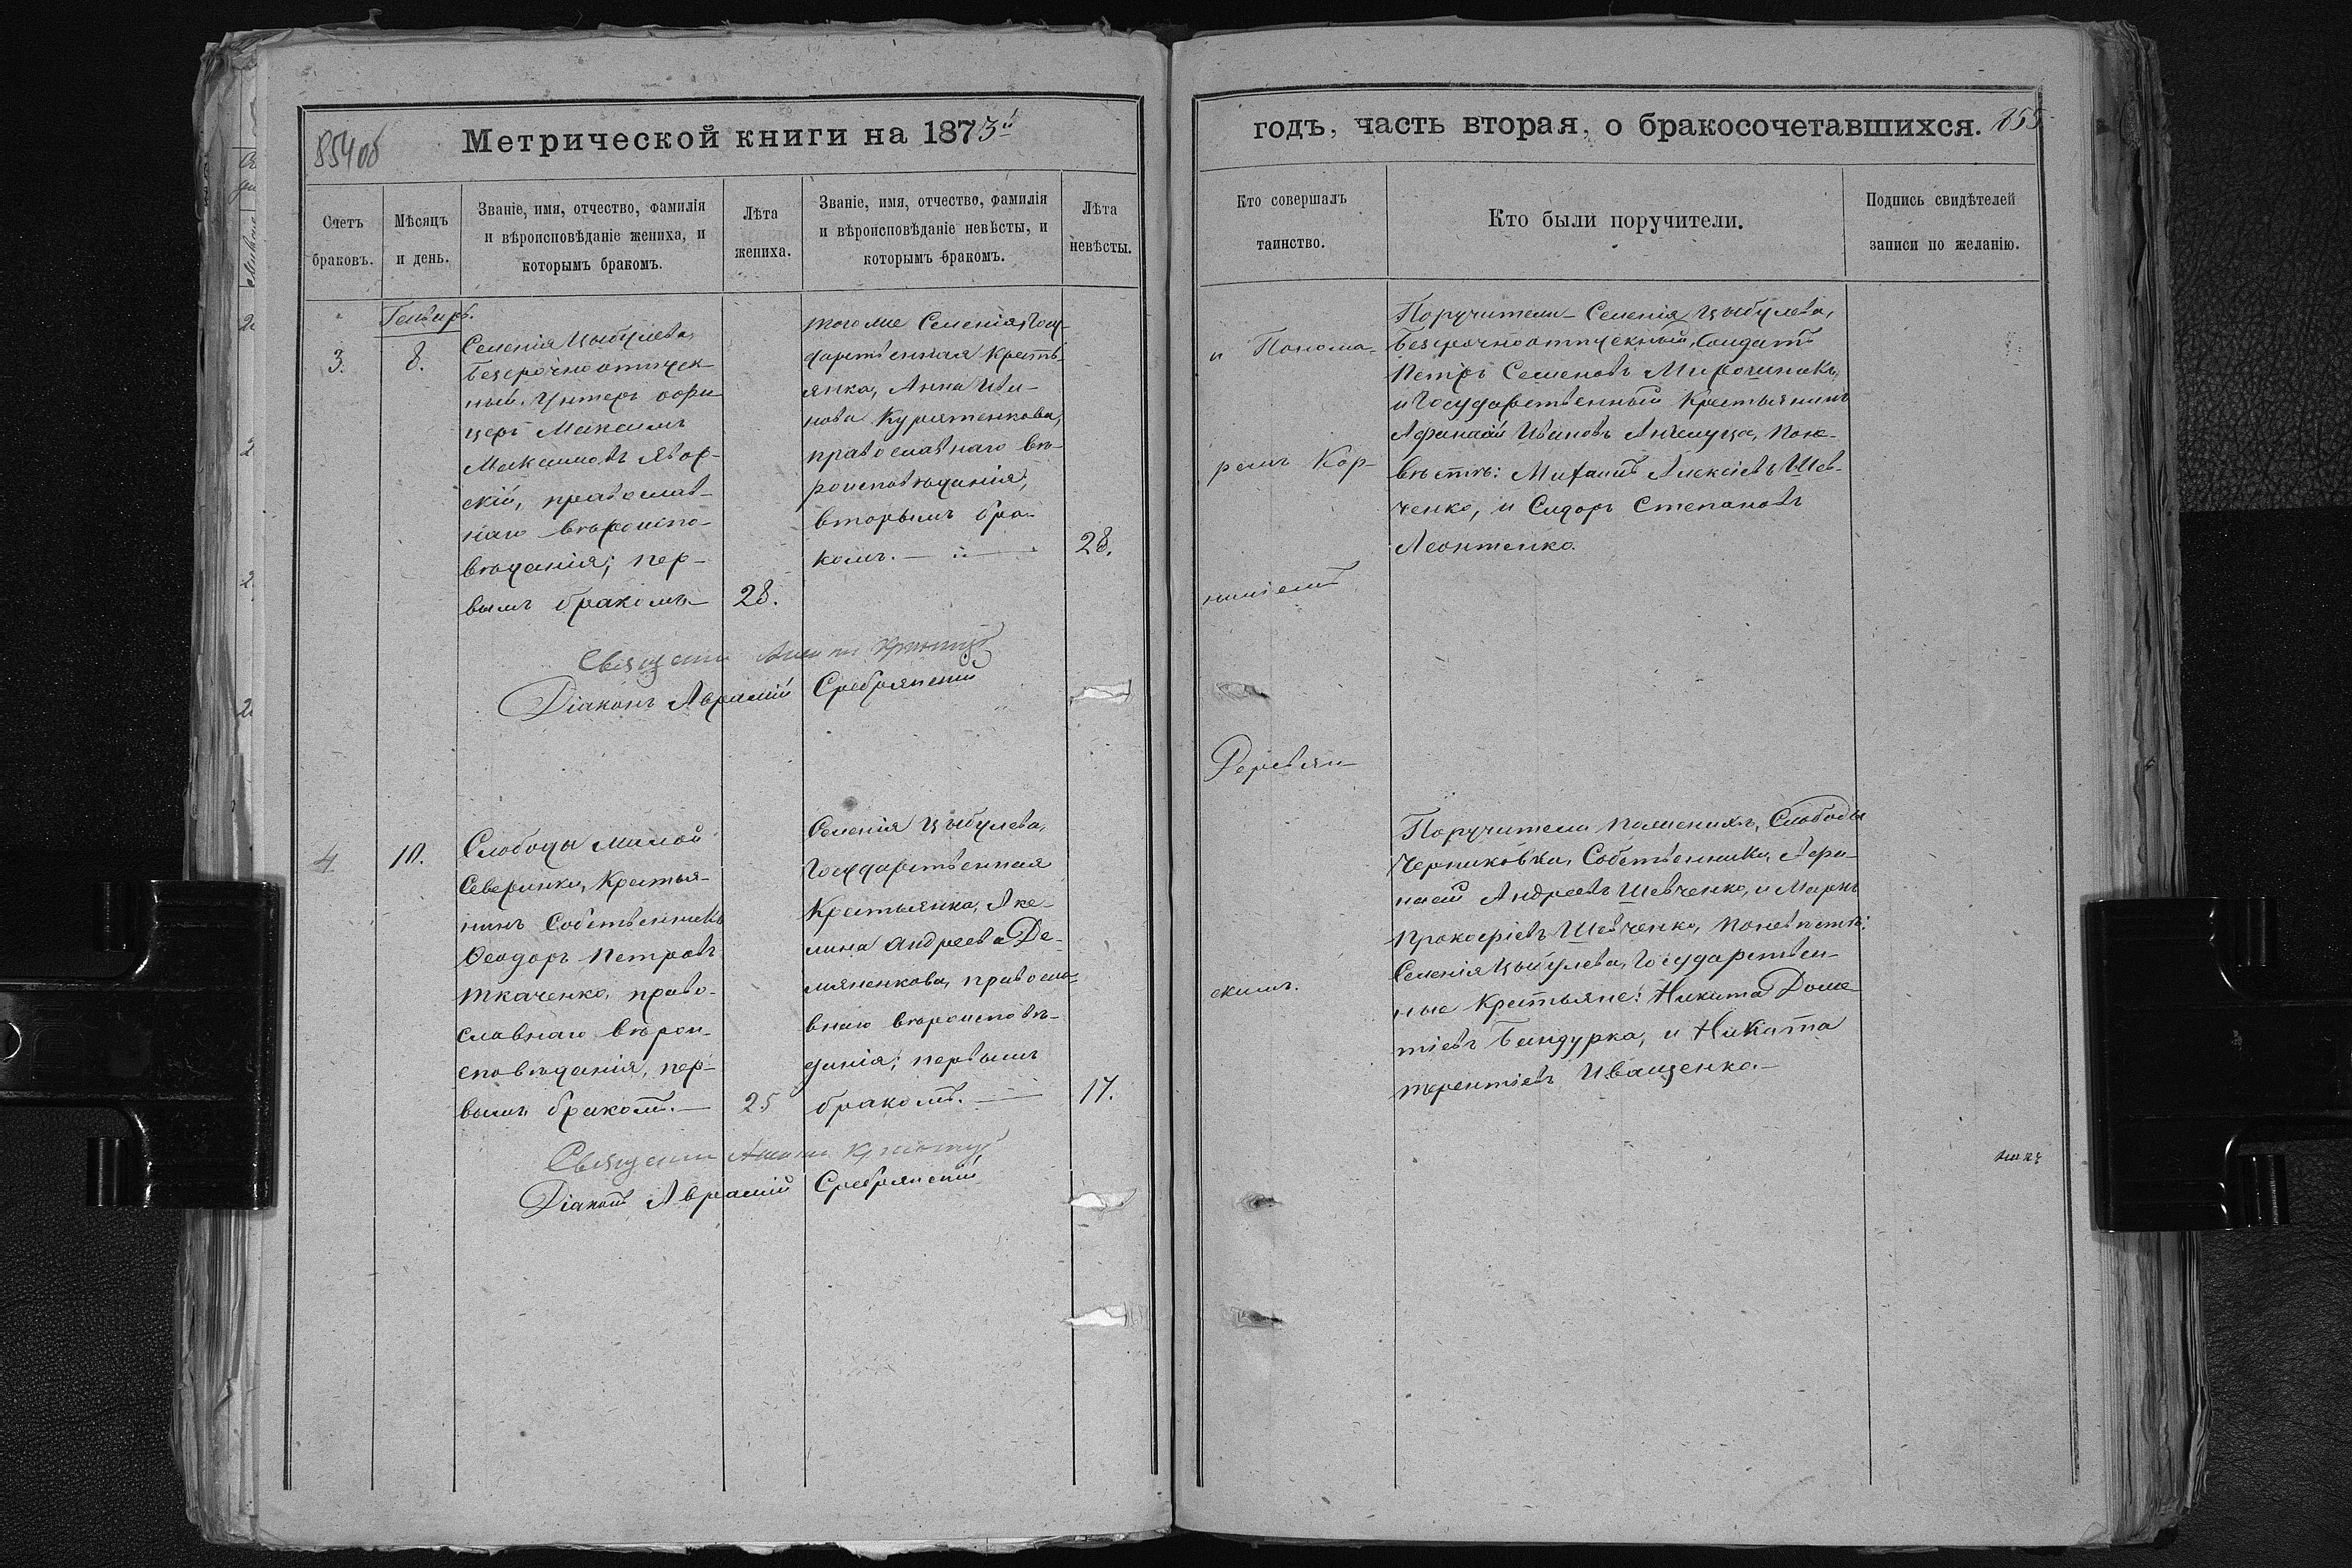 854об
Метрической книги на 1873й
Счетъ браковъ.
Мѣсяцъ и день.
Званіе, имя, отчество, фамилія
и вѣроисповѣданіе жениха, и
которымъ бракомъ.
Лѣта жениха.
Званіе, имя, отчество, фамилія
и вѣроисповѣданіе невѣсты, и
которымъ бракомъ.
Лѣта невѣсты.
Генварь.
3.
8.
Селенія Цыбулева,
Безсрочноотпуск-
ный Унтеръ офи
церъ Максимъ
Максимовъ Явор-
скій, православ-
наго вѣроиспо-
вѣданія; пер-
вымъ бракомъ.
28.
того же Селенія, Госу-
дарственная Кресть-
янка, Анна Ива-
нова Курятенкова,
православнаго вѣ-
роисповѣданія,
вторымъ бра-
комъ.
28.
Діаконъ Аврамій Сребрянскій
4
10.
Слободы Малой
Северинки, Крестья-
нинъ Собственникъ
Ѳеодоръ Петровъ
Ткаченко, право-
славнаго вѣрои-
сповѣданія, пер-
вымъ бракомъ.
25
Селенія Цыбулева,
Государственная
Крестьянка, Аке-
лина Андреева Де-
мяненкова, правосла-
внаго вѣроисповѣ-
данія; первымъ
бракомъ.
17.
Діаконъ Аврамій Сребрянскій
годъ, часть вторая, о бракосочетавшихся.
855
Кто совершалъ таинство.
Кто были поручители.
Подпись свидѣтелей
записи по желанію.
и Понома-
ремъ Кор-
ниліемъ
Деревян-
скимъ.
Поручители Селенія Цыбулева,
Безсрочноотпускный Солдатъ
Петръ Семеновъ Мирочникъ,
и Государственный Крестьянинъ
Афанасій Ивановъ, По не-
вѣстѣ: Михаилъ Алексіевъ Шев-
ченко, и Сидоръ Степановъ
Леонтенко.
Поручители по женихѣ, Слободы
Черниковки, Собственники, Афа-
насій Андреевъ Шевченко, и Марко
Прокофіевъ Шевченко, По невѣстѣ:
Селенія Цыбулева, Государствен-
ные Крестьяне: Никита Доме
тіевъ Бандурка, и Никита
Терентіевъ Иващенко.